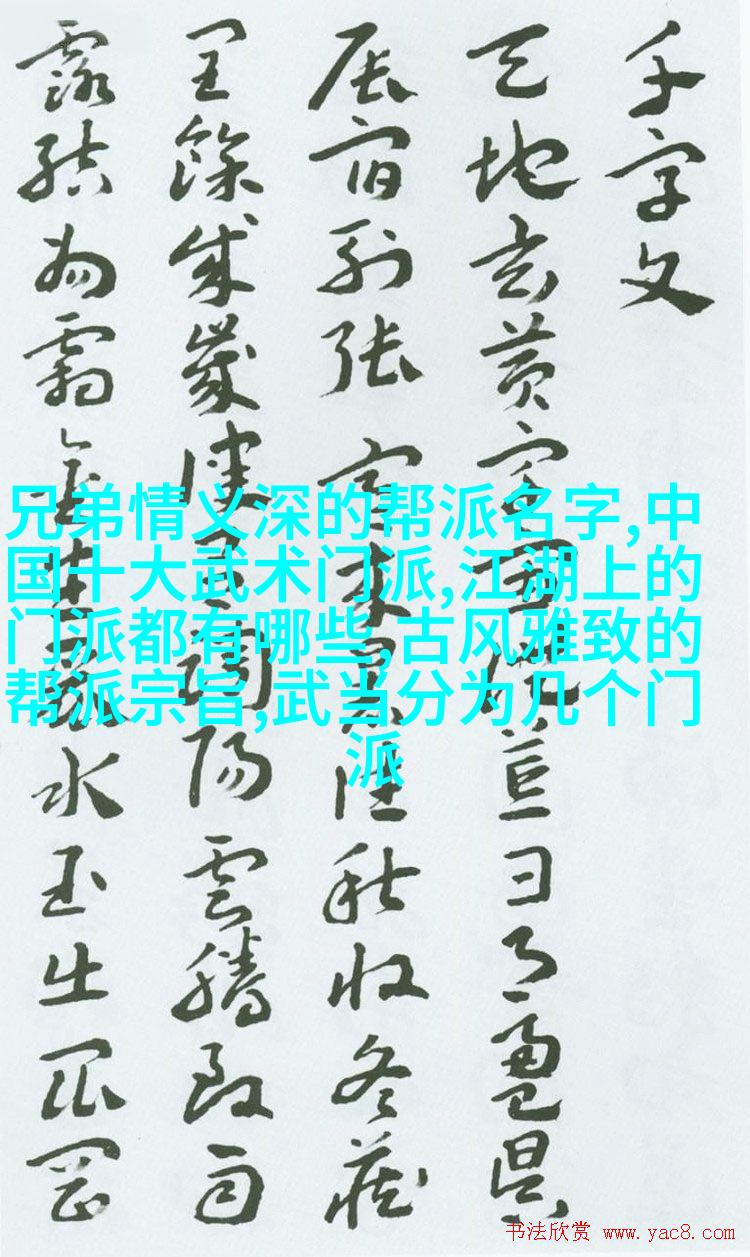 千字文
天地玄黄宇宙洪荒日月盈昃
辰宿列张寒来暑往秋收冬藏
闰馀成岁律吕调阳云腾致雨
露结为霜金生丽水玉出昆冈
兄弟情义深的帮派名字,中
国十大武术门派,江湖上的
门派都有哪些,古风雅致的
帮派宗旨,武当分为几个门
派
书法欣赏 www.yac8.com